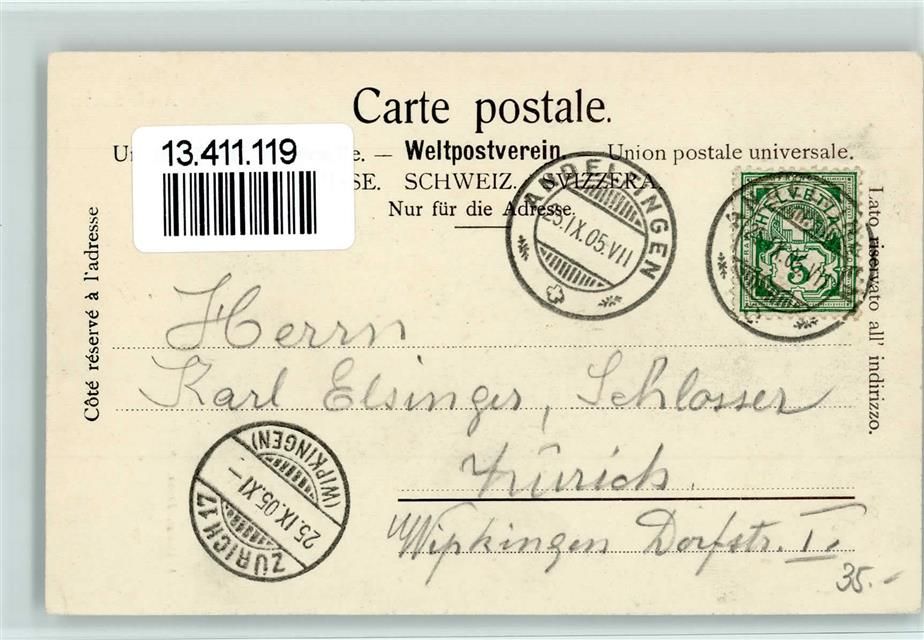 Carte postale.
13.411.119
— Weltpostverein — Union postale universale.
SCHWEIZ. SVIZZERA.
Nur für die Adresse.
ANDELFINGEN
25.IX.05.VII
HELVETIA
5
Côté réservé à l'adresse
Lato riservato all' indirizzo.
Herrn
Karl Elsinger, Schlosser
Zürich
Wipkingen Dorfstr. 1.
ZÜRICH 17
25.IX.05.XI–
(WIPKINGEN)
35.-